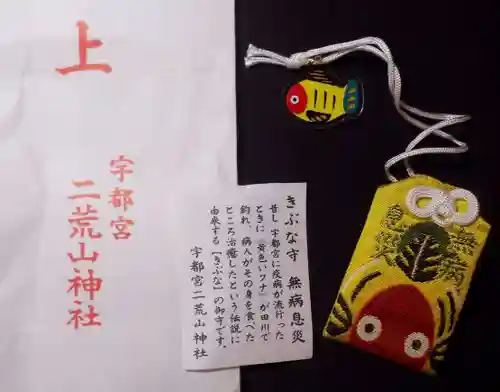 上
宇都宮
二荒山神社
きぶな守 無病息災
昔し 宇都宮に疫病が流行った
ときに「黄色いフナ」が田川で
釣れ、病人がその身を食べた
ところ治癒したという伝説に
由来する【きぶな】の御守です。
宇都宮二荒山神社
無病